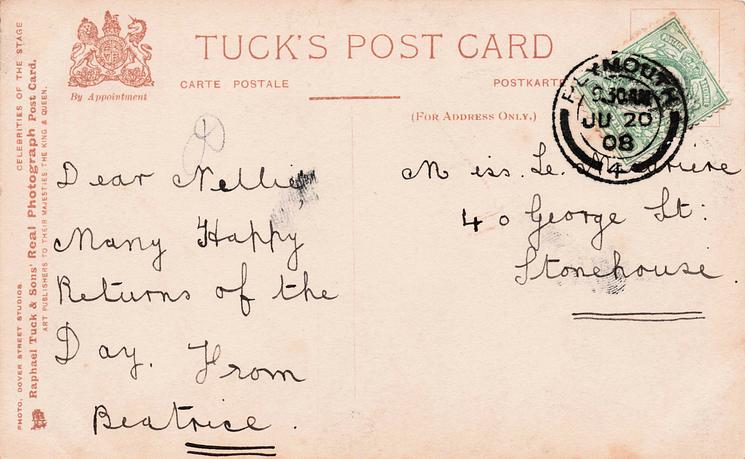 TUCK'S POST CARD
CARTE POSTALE
POSTKARTE
By Appointment
(FOR ADDRESS ONLY.)
CELEBRITIES OF THE STAGE
Raphael Tuck & Sons' Real Photograph Post Card.
ART PUBLISHERS TO THEIR MAJESTIES THE KING & QUEEN.
PHOTO, DOVER STREET STUDIOS.
PLYMOUTH
9.30AM
JU 20
08
4
Dear Nellie
Many Happy
Returns of the
Day. From
Beatrice.
Miss. Le.
40 George St:
Stonehouse.